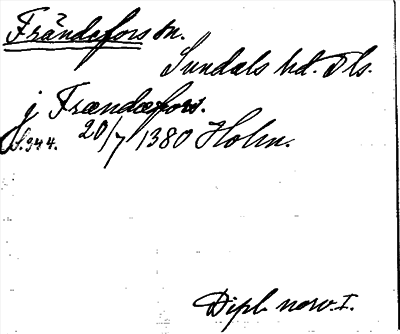 Frändefors sn.
Sundals hd. Dls.
j Frændæfors.
S. 344. 20/7 1380 Holm.
Dipl. norv. I.